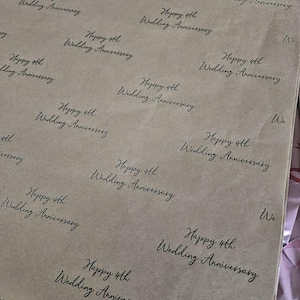 Happy 4th
Wedding Anniversary
Happy 4th
Wedding Anniversary
Happy 4th
Wedding Anniversary
Happy 4th
Wedding Anniversary
Happy 4th
Wedding Anniversary
Happy 4th
Wedding Anniversary
Happy 4th
Wedding Anniversary
Happy 4th
Wedding Anniversary
Happy 4th
Wedding Anniversary
Happy 4th
Wedding Anniversary
Happy 4th
Wedding Anniversary